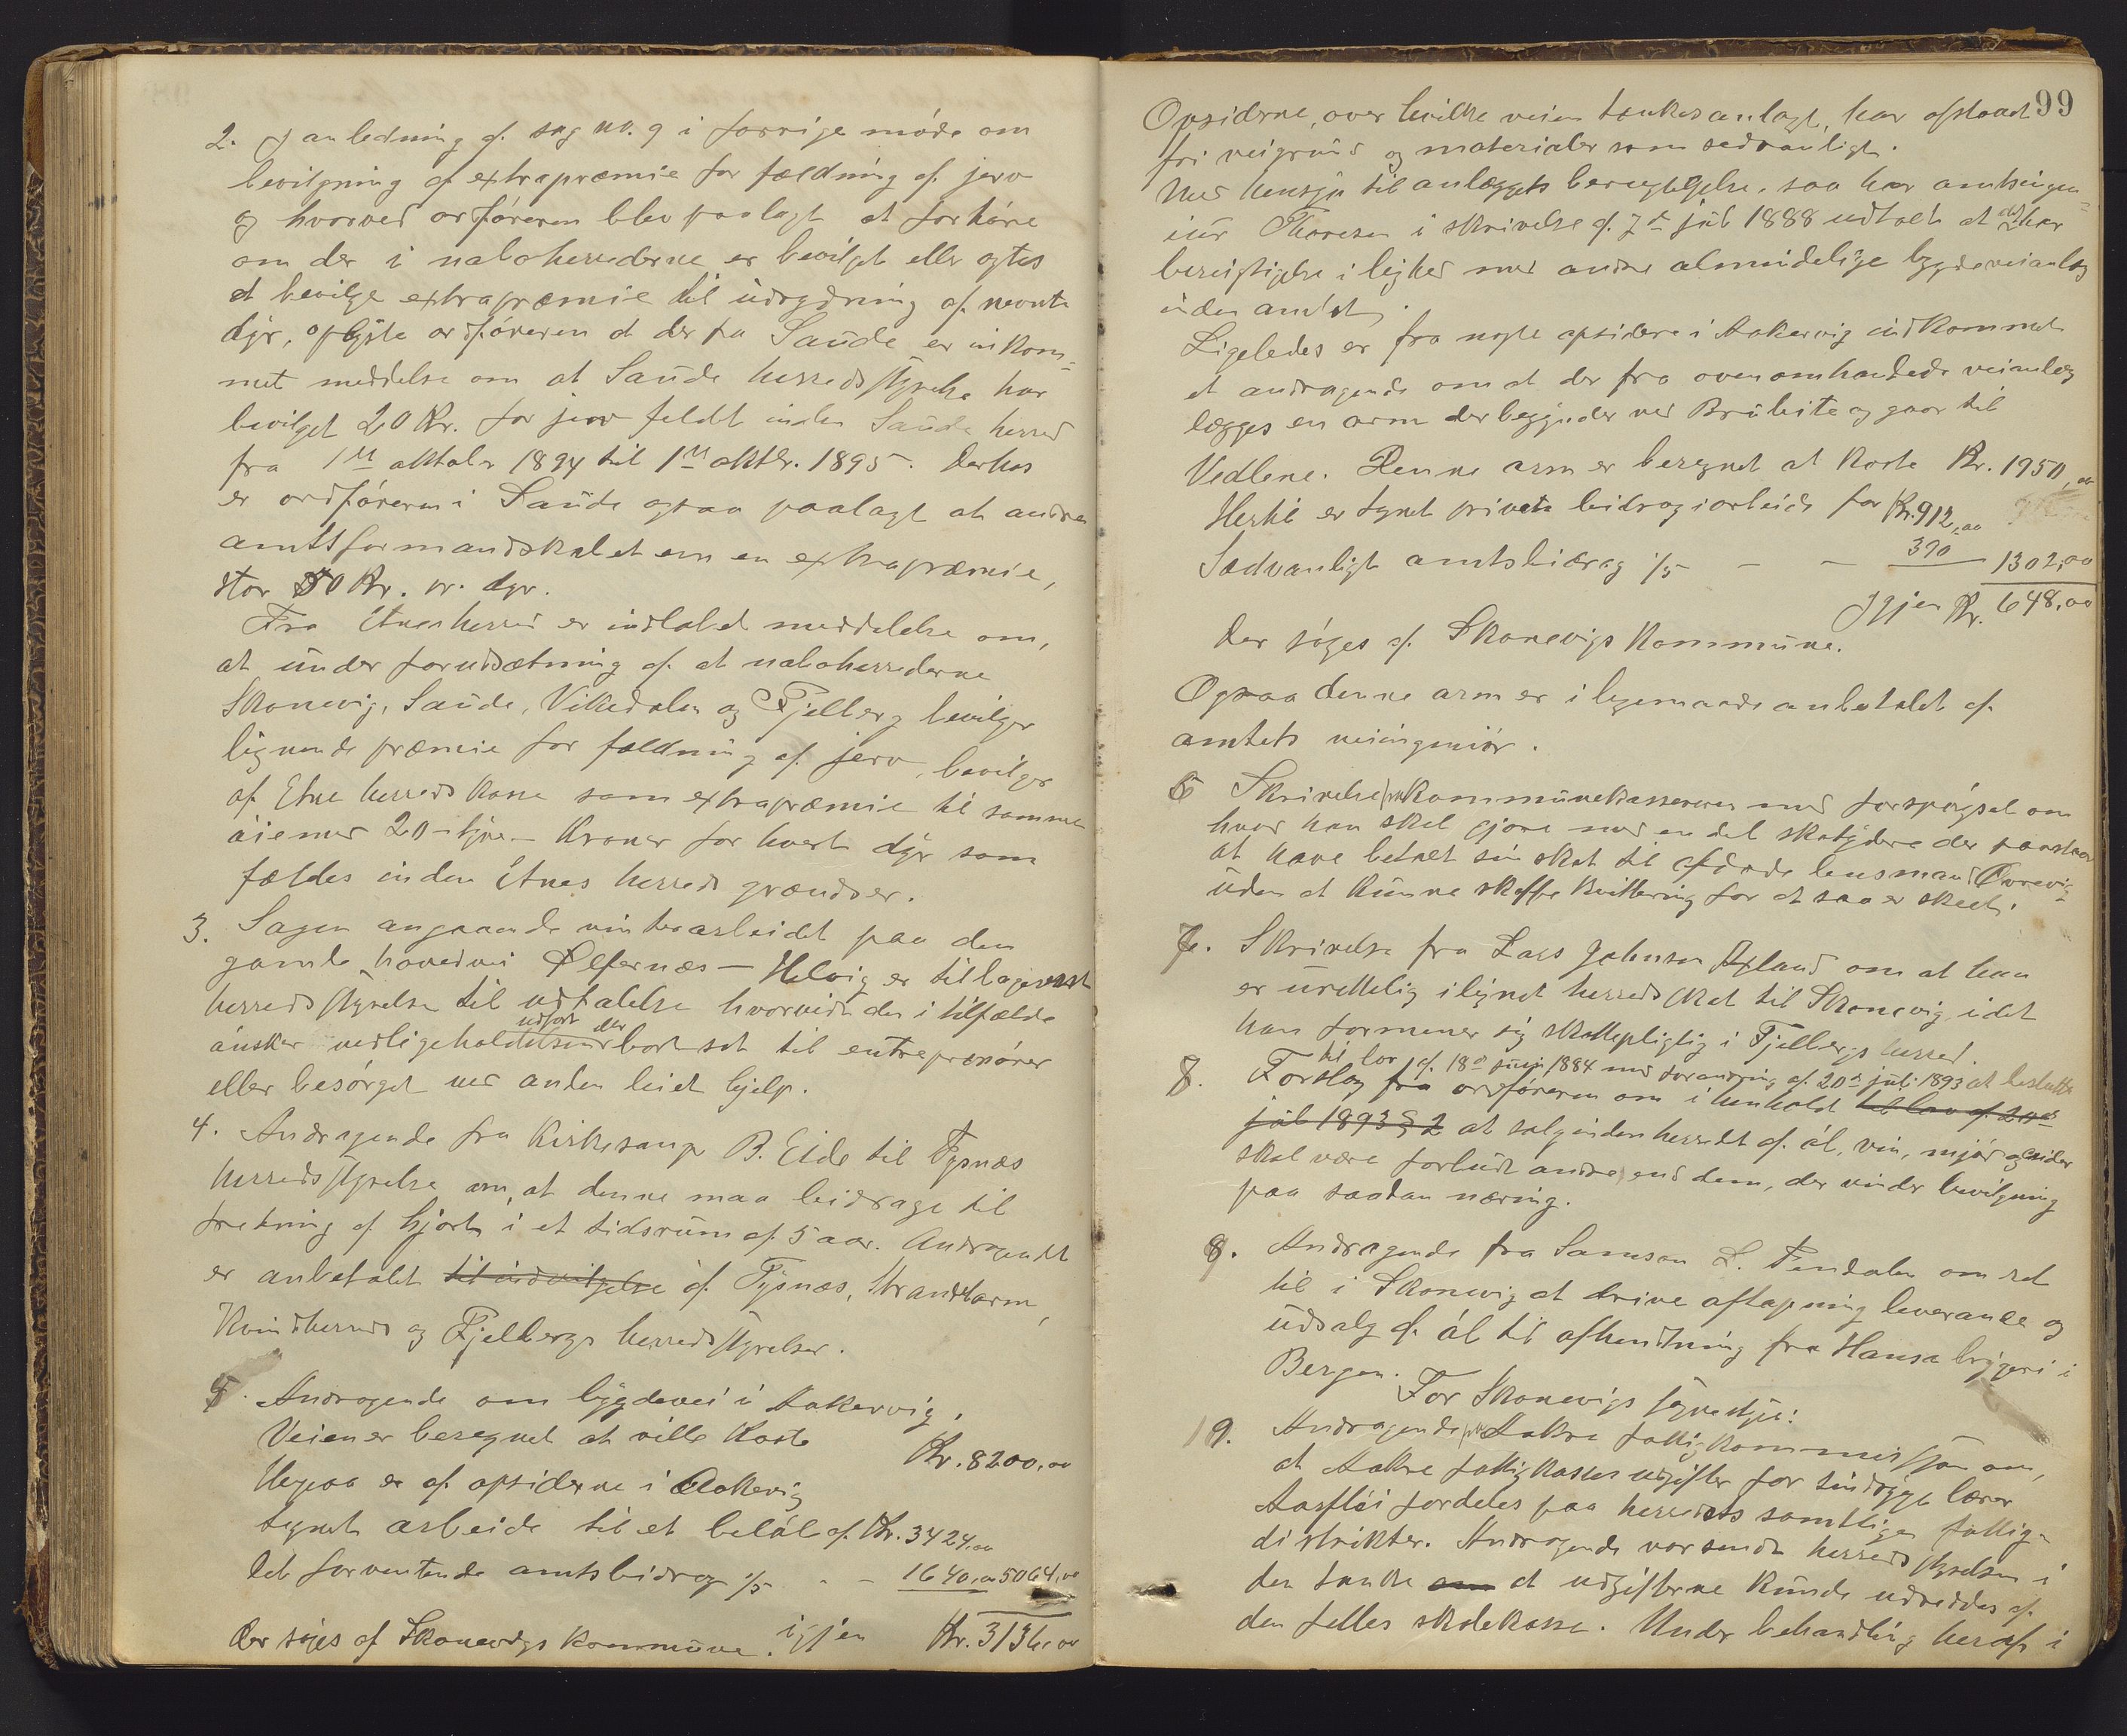 2. I anledning af sag no. 9 i forrige møde om
bevilgning af extrapræmie for fældning af jerv
og hvorved ordføreren blev paalagt at forhøre
om der i naboherrederne er bevilget eller agtes
at bevilge extrapræmie til udrydning af nevnte
dyr, oplyste ordføreren at der fra Saude er inkom=
met meddelse om at Saude herredsstyrelse har
bevilget 20 Kr. for jerv feldt inden Saude herred
fra 1ste oktober 1894 til 1ste oktbr. 1895. Derhos
er ordføreren i Saude ogsaa paalagt at andra
amtsformandskabet om en extrapræmie,
stor 50 Kr. pr. dyr.
Fra Etnes herred er indløbet meddelelse om,
at under forudsætning af at naboherrederne
Skonevig, Saude, Vikedalen og Fjelberg bevilger
lignende præmie for fældning af jerv, bevilger
af Etne herredskasse som extrapræmie til samme
øiemed 20 - tyve - Kroner for hvert dyr som
fældes inden Etnes herreds grændser.
3. Sagen angaaende vinterarbeidet paa den
gamle hovedvei Ølfernæs — Helvig er tilbagesendt
herredsstyrelsen til udtalelse hvorvidt den i tilfælde
udført eller
ønsker vedligeholdelsen bortsat til entreprenører
eller besørget ved anden leiet hjelp.
4. Andragende fra Kirkesanger B. Eide til Tysnæs
herredsstyrelse om, at denne maa beidrage til
fredning af hjort i et tidsrum af 5 aar. Andragendet
er anbefalet til indvilgelse af Tysnæs, Strandbarm,
Kvindherreds og Fjelbergs herredsstyrelser.
5. Andragende om bygdevei i Aakervig.
Veien er beregnet at ville koste Kr. 8200,00
Herpaa er af opsiderne i Aakervig
tegnet arbeide til et beløb af Kr. 3424,00
Det forventende amtsbidrag 1/5 - - 1640,00 5064,00
Der søges af Skonevigs kommune. igjen Kr. 3136,00
99
Opsiderne, over hvilke veien tænkes anlagt, har afstaaet
fri veigrund og materialer som sedvanligt.
Med hensyn til anlæggets berettigelse, saa har amtsingen=
iør Thoresen i skrivelse af 7de juli 1888 udtalt at det har
berettigelse i lighed med andre almindelige bygdeveianlæg
inden amtet.
Ligeledes er fra nogle opsidere i Aakervig indkommet
et andragende om at der fra ovenomhandlede veianlæg
lægges en arm der begynder ved Brubite og gaar til
Vedlene. Denne arm er beregnet at koste Kr. 1950,00
Hertil er tegnet private beidrag i arbeide for Kr. 912,00
Sædvanligt amtsbidrag 1/5 - - 390 1302,00
Igjen Kr. 648,00
der søges af Skonevigs Kommune.
Ogsaa denne arm er i ligemaade anbefalet af
amtets veiingeniør.
6 Skrivelse fra kommunekassereren med forspørgsel om
hvad han skal gjøre med en del skatydere der paastaar
at have betalt sin skat til afdøde lensmand Øvrevig
uden at kunne skaffe kvittering for at saa er skeet.
7. Skrivelse fra Lars Johnsen om at han
er urettelig ilignet herredsskat til Skonevig, idet
han formener sig skattepligtig i Fjelbergs herred.
til lov af 18de juni 1884 med forandring af 20de juli 1893 at beslutte
8. Forslag fra ordføreren om i henhold til lov af 20de
juli 1893 § 2 at salg inden herredet af øl, vin, mjød og cider
skal være forbudt andre, end dem, der vinder bevilgning
paa saadan næring.
9. Andragende fra Samson L. Tindalen om ret
til i Skonevig at drive aftapning leverance og
udsalg af øl til afhentning fra Hansa bryggeri i
Bergen.
For Skonevigs sognestyre:
10. Andragende fra Aakre fattigkommission om,
at Aakre fattigkasses udgifter for sindsyge lærer
Aarfløi fordeles paa herredets samtlige fattig=
distrikter. Andragende var sendt herredsstyrelsen i
den tanke om at udgifterne kunde udreddes af
den felles skolekasse. Under behandling heraf i